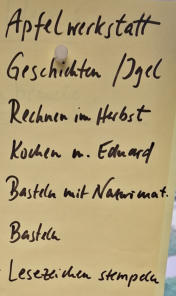 Apfelwerkstatt
Geschichten / Igel
Rechnen im Herbst
Kochen m. Eduard
Basteln mit Naturmat.
Basteln
Lesezeichen stempeln